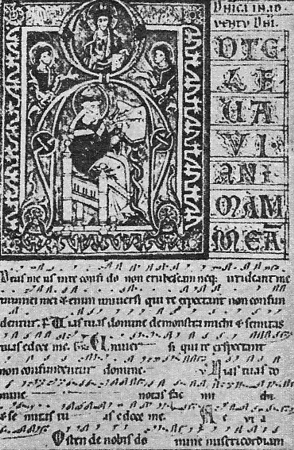 DNICA I IN AD
VENTV DNI.
D TE
LE
VA
VI
ANI
MAM
MEA
Deus me us in te confi do non erubescam neq; irrideant me
inimici mei & enim universi qui te expectant non confun
dentur. Vias tuas domine demonstra michi & semitas
tuas edoce me. Uni versi qui te expectant
non confundentur domine. Vias tuas do
mine notas fac mi chi
& se mitas tu as edoce me. A V ia
Osten de nobis do mine misericordiam